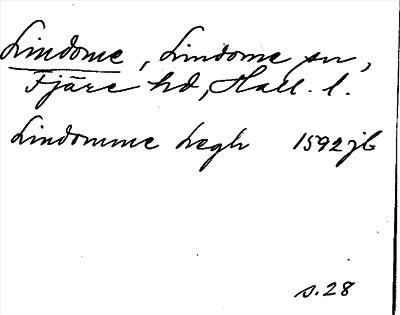 Lindome, Lindome sn,
Fjäre hd, Hall. l.
Lindomme legh 1592 jb
s. 28